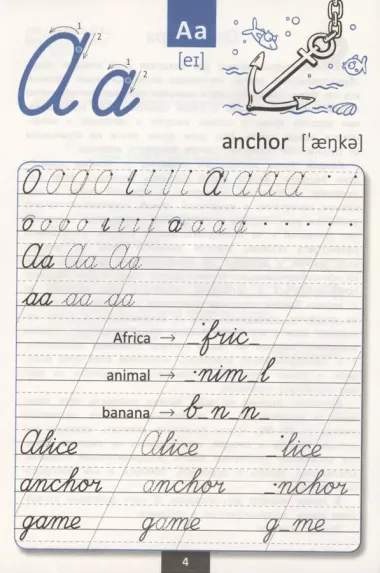 Aa
Aa
[eɪ]
anchor ['æŋkə]
O O O O l l l l A A A A
o o o o ι ι ι ι a a a a
Aa Aa Aa
aa aa aa
Africa → _fric_
animal → _nim_l
banana → b_n_n_
Alice Alice _lice
anchor anchor _nchor
game game g_me
4